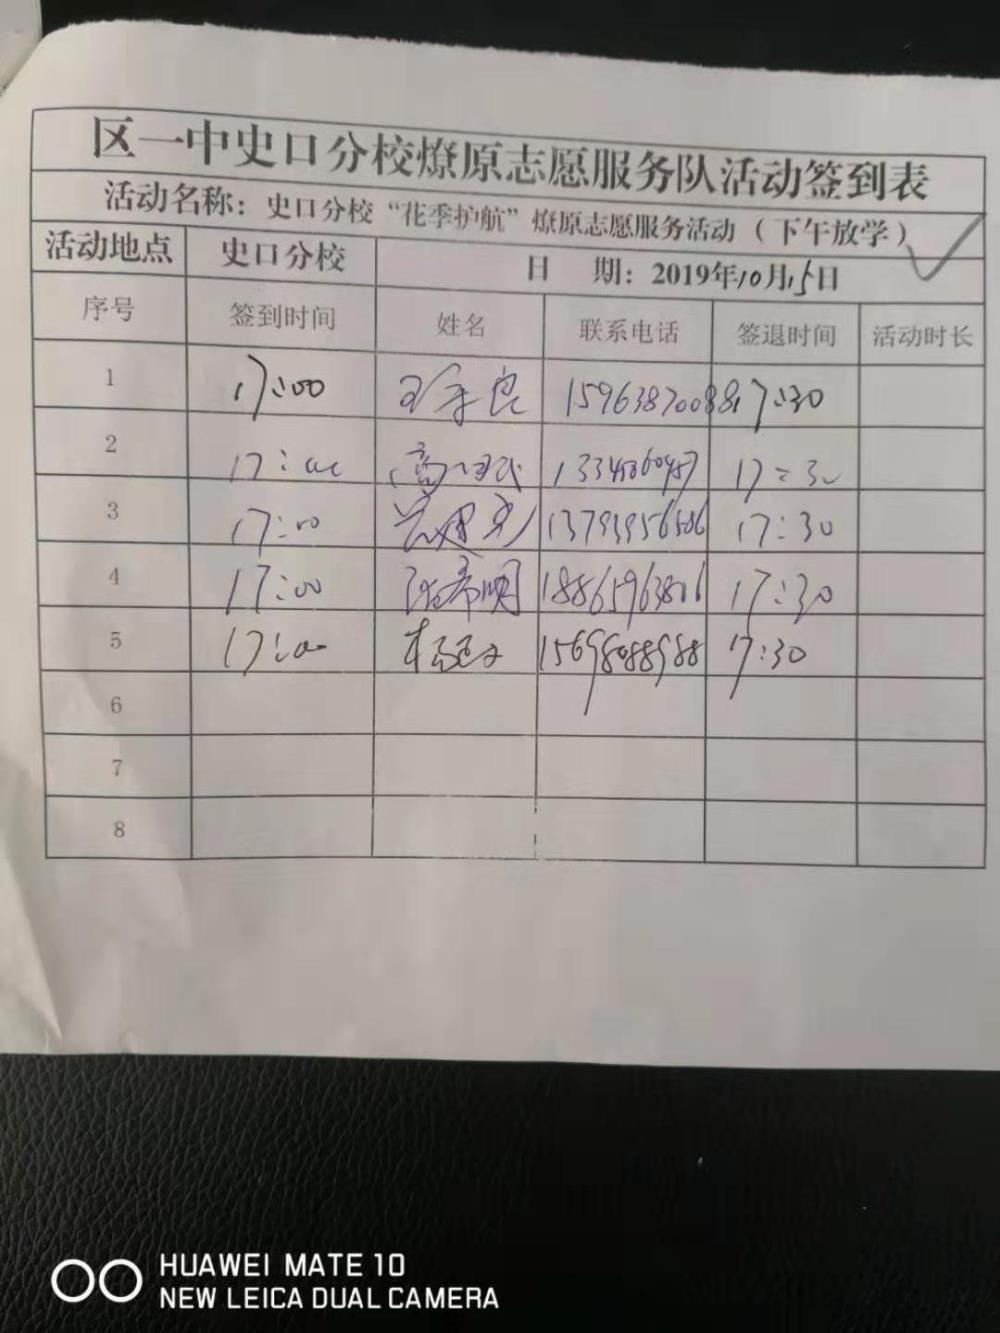 区一中史口分校燎原志愿服务队活动签到表
活动名称：史口分校“花季护航”燎原志愿服务活动（下午放学）
活动地点 史口分校 日 期：2019年10月15日
序号 签到时间 姓名 联系电话 签退时间 活动时长
1 17:00 15963870088 17:30
2 17:00 17:30
3 17:00 13793956586 17:30
4 17:00 17:30
5 17:00 15698088988 17:30
6
7
8
HUAWEI MATE 10
NEW LEICA DUAL CAMERA